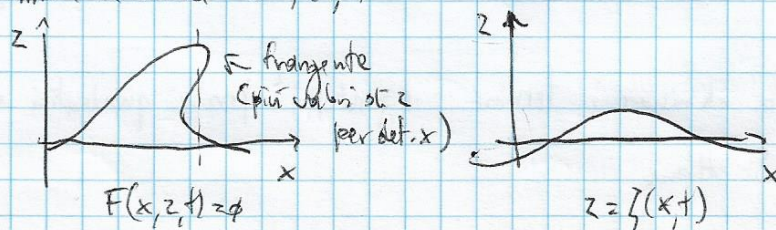 z
← frangente
(più valori di z
per det. x)
x
F(x,z,t)=ϕ
z
x
z=ζ(x,t)